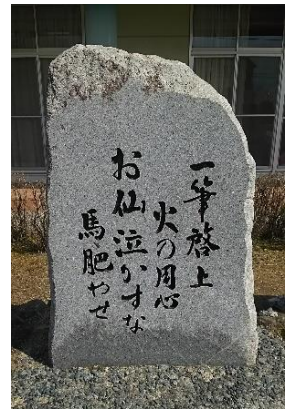 一筆啓上
火の用心
お仙泣かすな
馬肥やせ